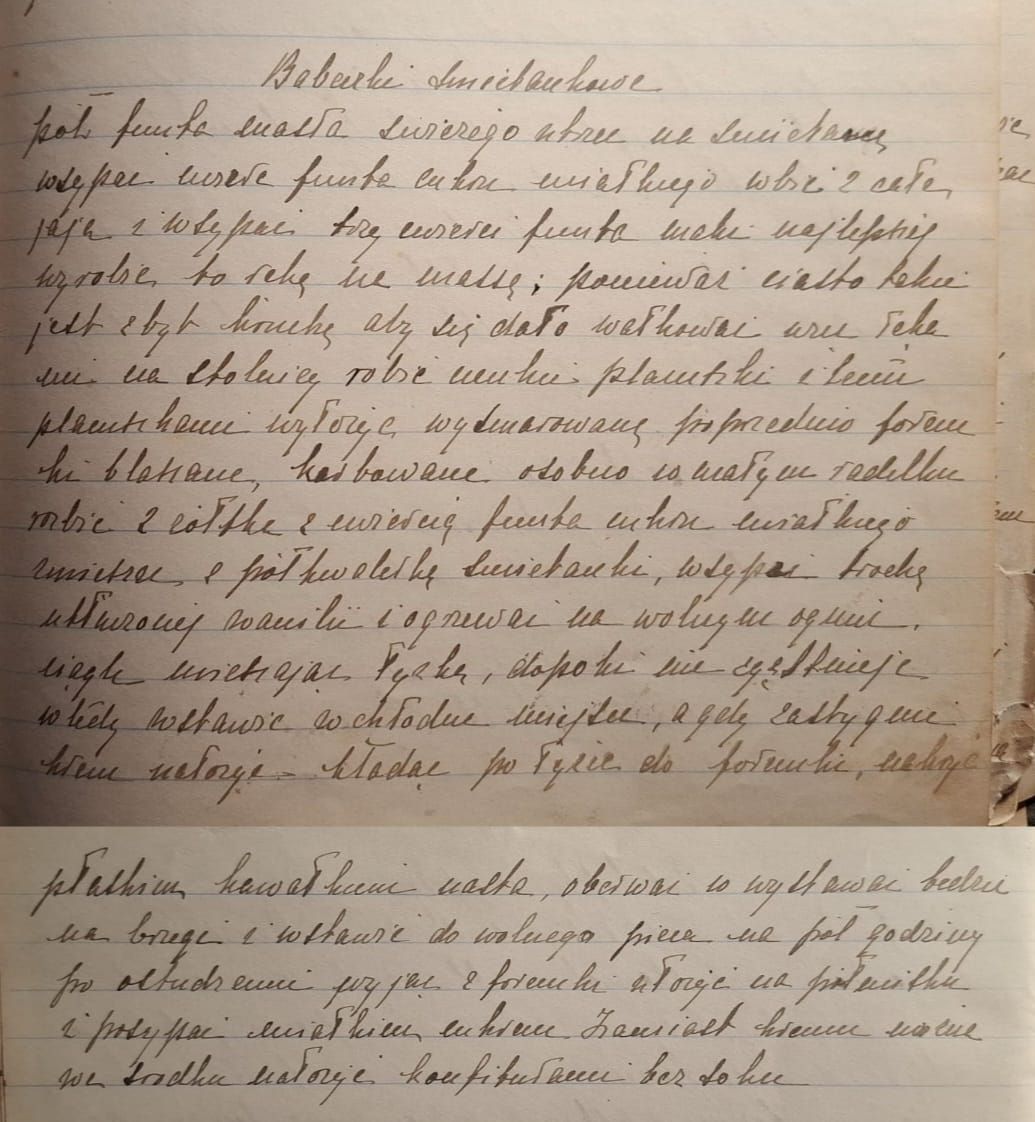 Babeczki śmietankowe
pół funta masła świerzego utrzeć na śmietanę
wsypać ćwierć funta cukru miałkiego wbić 2 całe
jaja i wsypać trzy ćwierci funta mąki najlepszej
wyrobić to ręką na massę; ponieważ ciasto takie
jest zbyt kruche aby się dało wałkować wzu ręka
mi na stolnicy robić cienkie placuszki i temi
placuszkami wyłożyć wysmarowane poprzednio forem
ki blaszane, karbowane osobno w małym radelku
rozbić 2 żółtka z ćwiercią funta cukru miałkiego
zmieszać z półkwaterką śmietanki, wsypać trochę
utłuczonej wanilii i ogrzewać na wolnym ogniu.
ciągle mieszając łyżką, dopóki nie zgęstnieje
wtedy wstawić w chłodne miejsce, a gdy zastygnie
krem nałożyć - kładąc po łyżce do foremki, nakryć
płaskim kawałkiem ciasta, oberwać co wystawać będzie
na brzegi i wstawić do wolnego pieca na pół godziny
po ostudzeniu wyjąć z foremki ułożyć na półmisku
i posypać miałkiem cukrem Zamiast kremu można
we środku nałożyć konfiturami bez soku